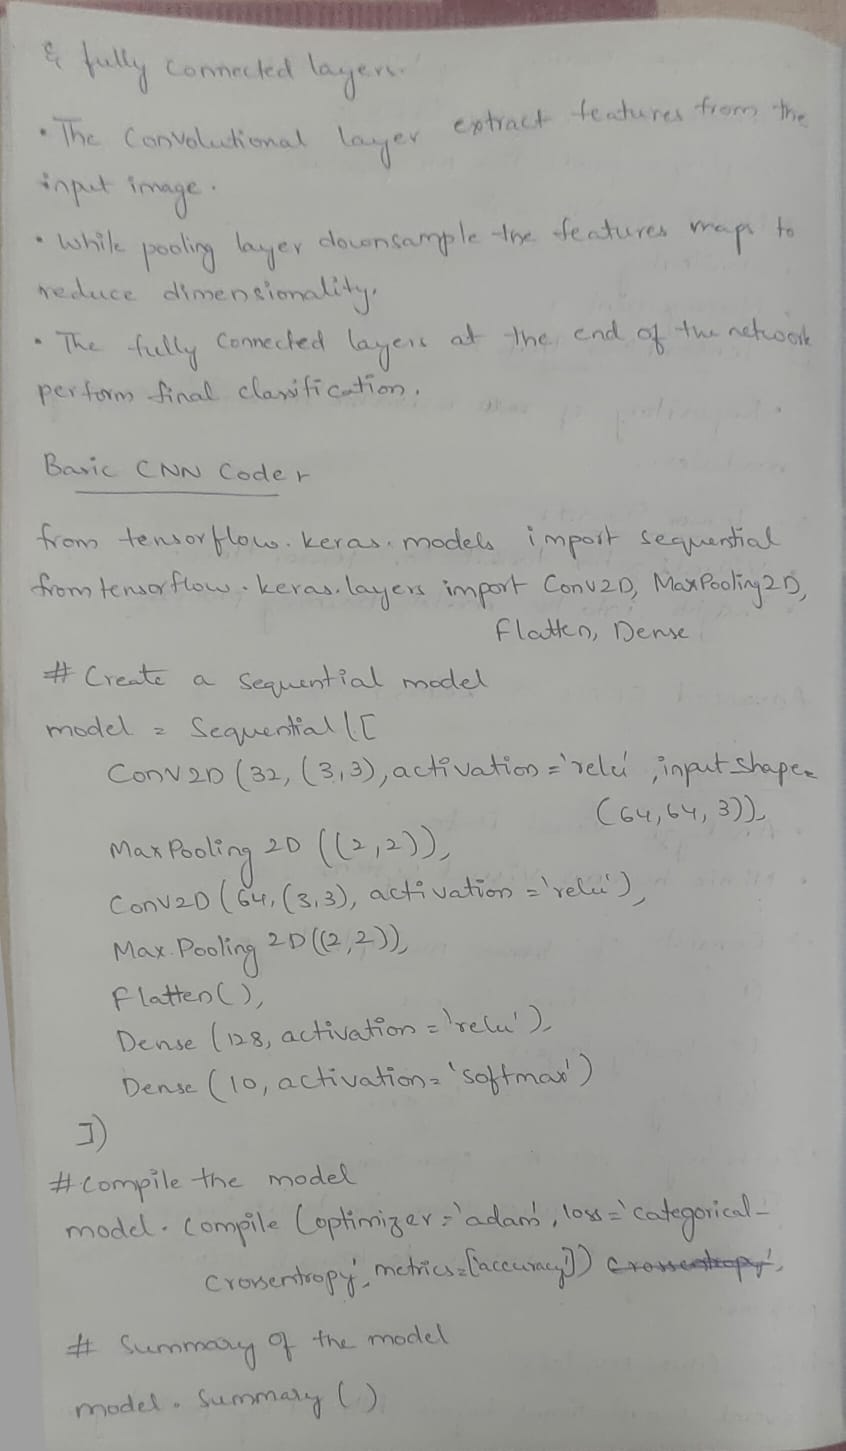 & fully connected layers.
• The Convolutional layer extract features from the
input image.
• While pooling layer downsample the features maps to
reduce dimensionality.
• The fully connected layers at the end of the network
perform final classification.
Basic CNN Code
from tensorflow.keras.models import sequential
from tensorflow.keras.layers import Conv2D, MaxPooling2D,
Flatten, Dense
# Create a sequential model
model = Sequential ([
Conv2D (32, (3,3), activation = 'relu', input shape=
(64,64,3)),
MaxPooling 2D ((2,2)),
Conv2D (64, (3,3), activation = 'relu'),
Max Pooling 2D ((2,2)),
Flatten(),
Dense (128, activation = 'relu'),
Dense (10, activation = 'softmax')
])
# Compile the model
model. compile (optimizer = 'adam', loss = 'categorical-
crossentropy', metrics=['accuracy']) crossentropy',
# Summary of the model
model. Summary ()